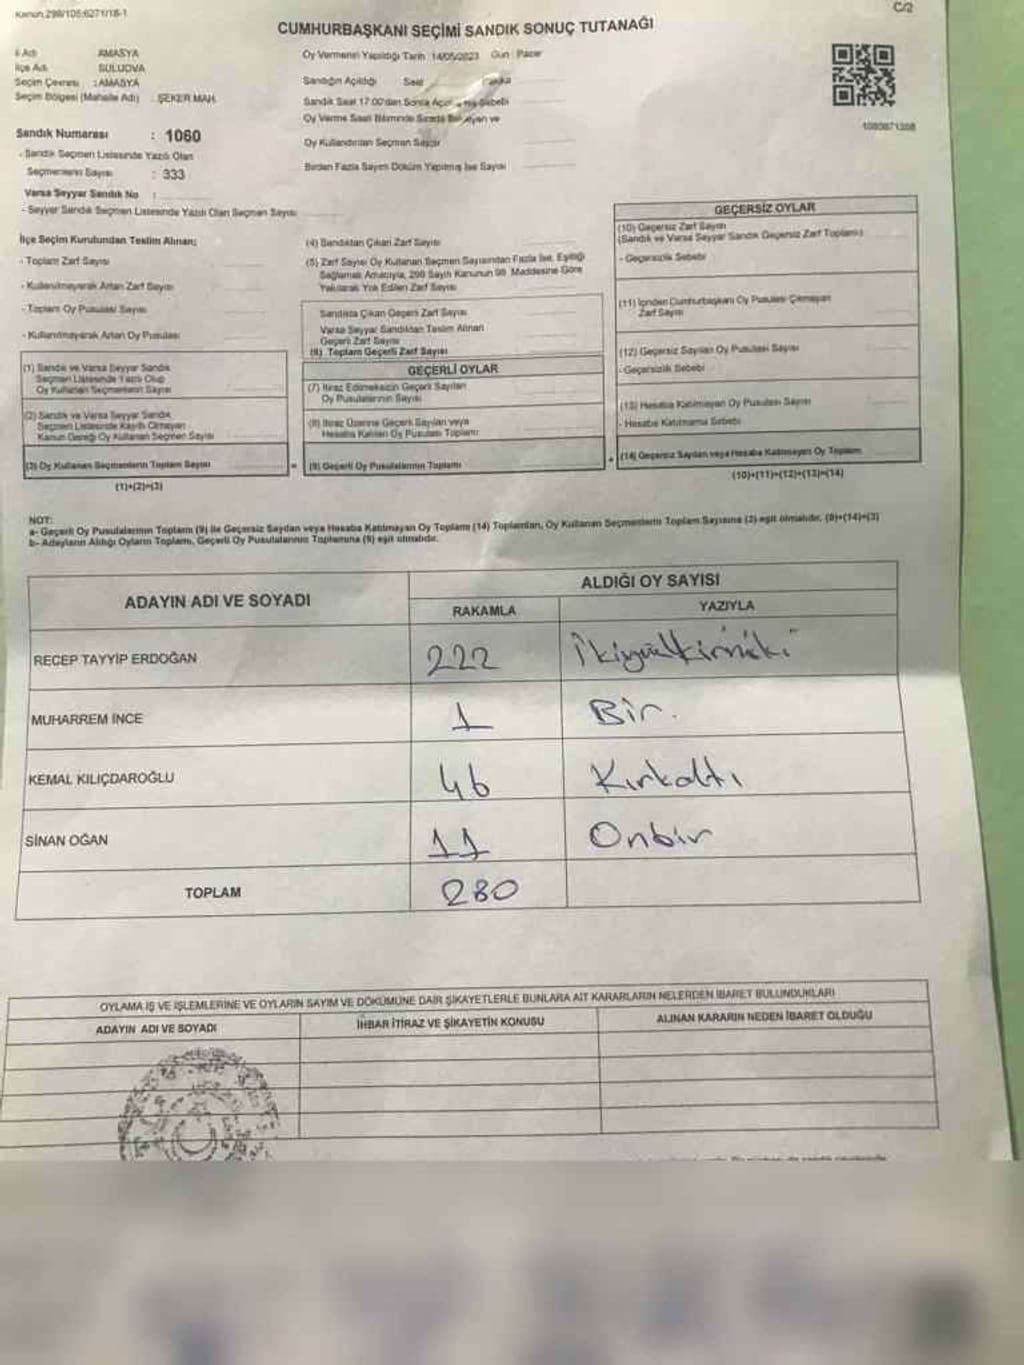 Kanun:298/105;6271/18-1
C/2
CUMHURBAŞKANI SEÇİMİ SANDIK SONUÇ TUTANAĞI
İl Adı AMASYA
İlçe Adı SULUOVA
Seçim Çevresi : AMASYA
Seçim Bölgesi (Mahalle Adı) : ŞEKER MAH.
Sandık Numarası : 1060
- Sandık Seçmen Listesinde Yazılı Olan
Seçmenlerin Sayısı : 333
Varsa Seyyar Sandık No :
- Seyyar Sandık Seçmen Listesinde Yazılı Olan Seçmen Sayısı
Oy Vermenin Yapıldığı Tarih : 14/05/2023 Gün : Pazar
Sandığın Açıldığı Saat
Sandık Saat 17.00'dan Sonra
Oy Verme Saati Bitiminde Sırada Bekleyen ve
Oy Kullandırılan Seçmen Sayısı
Birden Fazla Sayım Döküm Yapılmış İse Sayısı
İlçe Seçim Kurulundan Teslim Alınan;
- Toplam Zarf Sayısı
- Kullanılmayarak Artan Zarf Sayısı
- Toplam Oy Pusulası Sayısı
- Kullanılmayarak Artan Oy Pusulası
(1) Sandık ve Varsa Seyyar Sandık
Seçmen Listesinde Yazılı Olup
Oy Kullanan Seçmenlerin Sayısı
(2) Sandık ve Varsa Seyyar Sandık
Seçmen Listesinde Kayıtlı Olmayan
Kanun Gereği Oy Kullanan Seçmen Sayısı
(3) Oy Kullanan Seçmenlerin Toplam Sayısı
(1)+(2)=(3)
(4) Sandıktan Çıkan Zarf Sayısı
(5) Zarf Sayısı Oy Kullanan Seçmen Sayısından Fazla İse, Eşitliği
Sağlamak Amacıyla, 298 Sayılı Kanunun 98. Maddesine Göre
Yakılarak Yok Edilen Zarf Sayısı
Sandıkta Çıkan Geçerli Zarf Sayısı
Varsa Seyyar Sandıktan Teslim Alınan
Geçerli Zarf Sayısı
(6) Toplam Geçerli Zarf Sayısı
GEÇERLİ OYLAR
(7) İtiraz Edilmeksizin Geçerli Sayılan
Oy Pusulalarının Sayısı
(8) İtiraz Üzerine Geçerli Sayılan veya
Hesaba Katılan Oy Pusulası Toplamı
= (9) Geçerli Oy Pusulalarının Toplamı
GEÇERSİZ OYLAR
(10) Geçersiz Zarf Sayısı
(Sandık ve Varsa Seyyar Sandık Geçersiz Zarf Toplamı)
- Geçersizlik Sebebi
(11) İçinden Cumhurbaşkanı Oy Pusulası Çıkmayan
Zarf Sayısı
(12) Geçersiz Sayılan Oy Pusulası Sayısı
- Geçersizlik Sebebi
(13) Hesaba Katılmayan Oy Pusulası Sayısı
- Hesaba Katılmama Sebebi
+ (14) Geçersiz Sayılan veya Hesaba Katılmayan Oy Toplamı
(10)+(11)+(12)+(13)=(14)
NOT:
a- Geçerli Oy Pusulalarının Toplamı (9) ile Geçersiz Sayılan veya Hesaba Katılmayan Oy Toplamı (14) Toplamları, Oy Kullanan Seçmenlerin Toplam Sayısına (3) eşit olmalıdır. (9)+(14)=(3)
b- Adayların Aldığı Oyların Toplamı, Geçerli Oy Pusulalarının Toplamına (9) eşit olmalıdır.
ADAYIN ADI VE SOYADI
ALDIĞI OY SAYISI
RAKAMLA YAZIYLA
RECEP TAYYİP ERDOĞAN 222 İkiyüzyirmiiki
MUHARREM İNCE 1 Bir.
KEMAL KILIÇDAROĞLU 46 Kırkaltı
SİNAN OĞAN 11 Onbir
TOPLAM 280
OYLAMA İŞ VE İŞLEMLERİNE VE OYLARIN SAYIM VE DÖKÜMÜNE DAİR ŞİKAYETLERLE BUNLARA AİT KARARLARIN NELERDEN İBARET BULUNDUKLARI
ADAYIN ADI VE SOYADI İHBAR İTİRAZ VE ŞİKAYETİN KONUSU ALINAN KARARIN NEDEN İBARET OLDUĞU